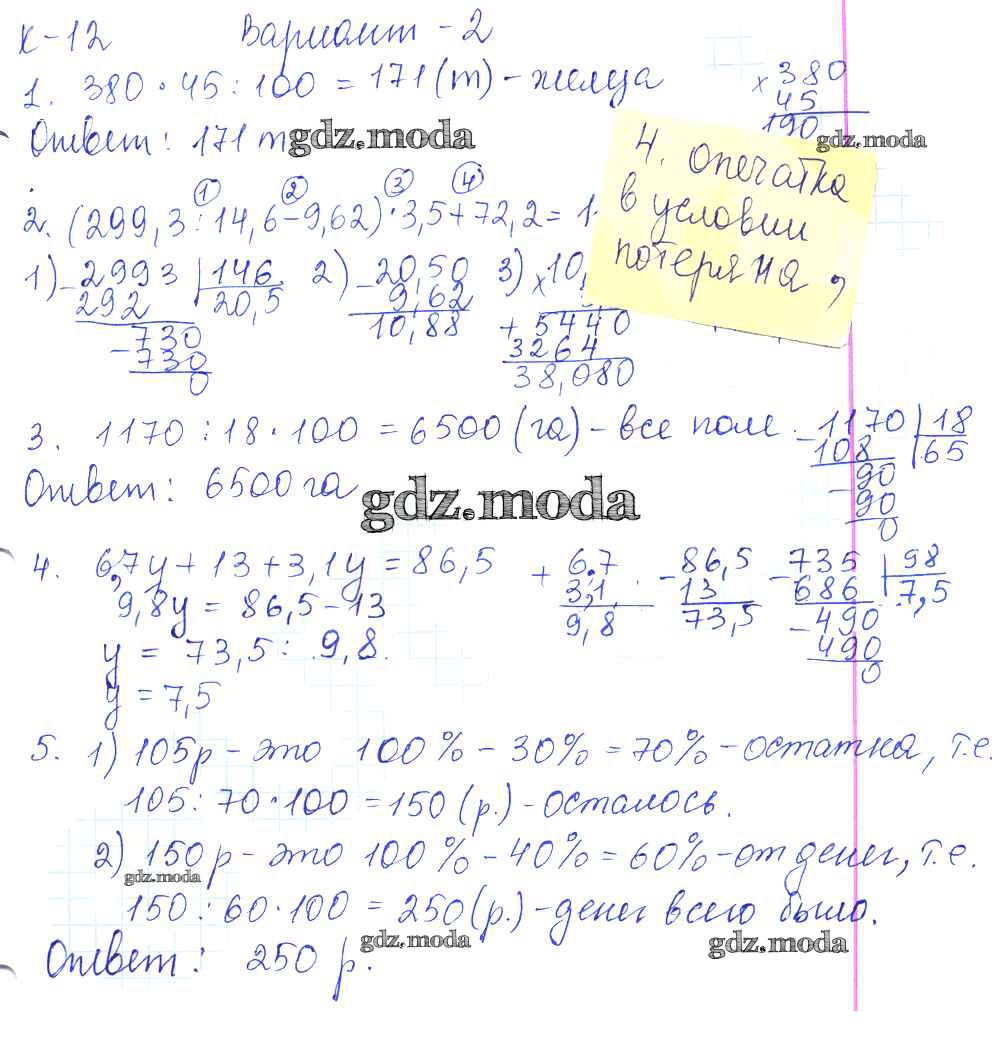 К-12 Вариант - 2
1. 380 · 45 : 100 = 171 (т) - железа
× 380
45
190
Ответ: 171 т
gdz.moda
gdz.moda
4. Опечатка
в условии
потеряна ,
① ② ③ ④
2. (299,3 : 14,6 - 9,62) · 3,5 + 72,2 = 1
1) - 2993 | 146
292 20,5
- 730
730
0
2) - 20,50
9,62
10,88
3) × 10,
+ 5440
3264
38,080
3. 1170 : 18 · 100 = 6500 (га) - все поле.
- 1170 | 18
108 65
- 90
90
0
Ответ: 6500 га
gdz.moda
4. 6,7y + 13 + 3,1y = 86,5
9,8y = 86,5 - 13
y = 73,5 : 9,8
y = 7,5
+ 6,7
3,1
9,8
- 86,5
13
73,5
- 735 | 98
686 7,5
- 490
490
0
5. 1) 105р - это 100% - 30% = 70% - остатка, т.е.
105 : 70 · 100 = 150 (р.) - осталось.
2) 150р - это 100% - 40% = 60% - от денег, т.е.
gdz.moda
150 : 60 · 100 = 250 (р.) - денег всего было.
gdz.moda
gdz.moda
Ответ: 250 р.